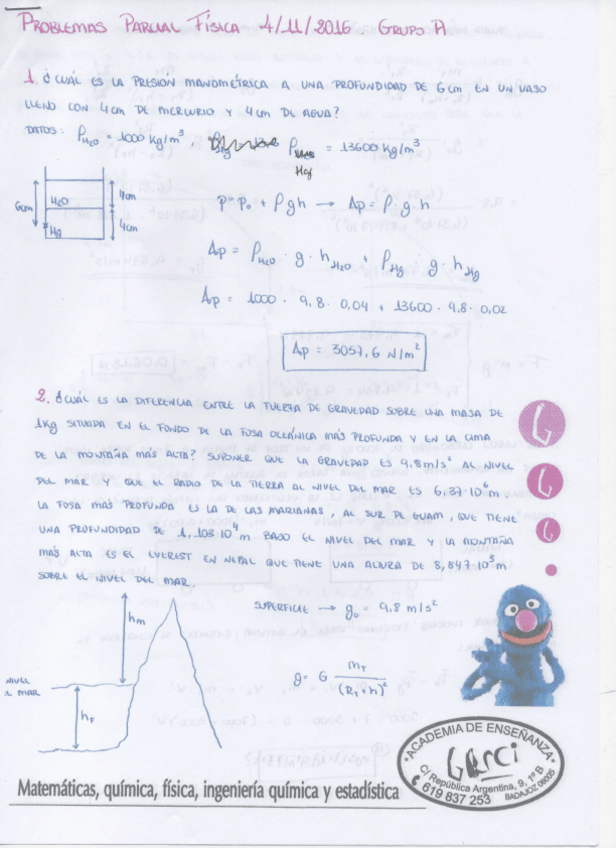 PROBLEMAS PARCIAL FÍSICA 4/11/2016. GRUPO A
1. ¿CUÁL ES LA PRESION MANOMÉTRICA A UNA PROFUNDIDAD DE 6 cm EN UN VASO
LLENO CON 4 cm DE MERCURIO Y 4 cm DE AGUA?
DATOS: ρH2O = 1000 Kg/m³, ρHg = 13600 Kg/m³
6cm H2O 4cm
Hg 4cm
P = P0 + ρgh → Δp = ρ·g·h
Δp = ρH2O · g · hH2O + ρHg · g · hHg
Δp = 1000 · 9,8 · 0,04 + 13600 · 9,8 · 0,02
Δp = 3057,6 N/m²
2. ¿CUÁL ES LA DIFERENCIA ENTRE LA FUERZA DE GRAVEDAD SOBRE UNA MASA DE
1Kg SITUADA EN EL FONDO DE LA FOSA OCEÁNICA MÁS PROFUNDA Y EN LA CIMA
DE LA MONTAÑA MÁS ALTA? SUPONER QUE LA GRAVEDAD ES 9,8 m/s² AL NIVEL
DEL MAR Y QUE EL RADIO DE LA TIERRA AL NIVEL DEL MAR ES 6,37·10⁶ m.
LA FOSA MÁS PROFUNDA ES LA DE LAS MARIANAS, AL SUR DE GUAM, QUE TIENE
UNA PROFUNDIDAD DE 1,103·10⁴ m BAJO EL NIVEL DEL MAR Y LA MONTAÑA
MÁS ALTA ES EL EVEREST EN NEPAL QUE TIENE UNA ALTURA DE 8,847·10³ m
SOBRE EL NIVEL DEL MAR.
hm
SUPERFICIE → g0 = 9,8 m/s²
g = G mT/(RT+h)²
NIVEL
L MAR
hF
ACADEMIA DE ENSEÑANZA
Garci
C/ República Argentina, 9, 1º B
619 837 253
BADAJOZ 06005
Matemáticas, química, física, ingeniería química y estadística